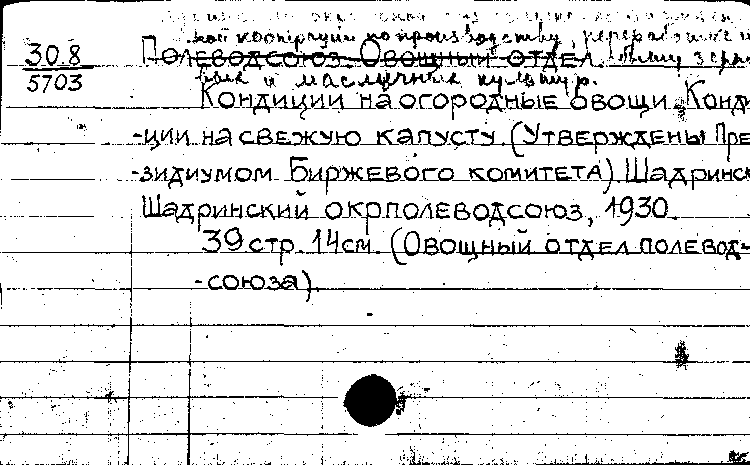 ной кооперации по производству, переработке и
30.8
5703
Полеводсоюз. Овощный отдел. сбыту зерно
вых и масличных культур.
Кондиции на огородные овощи. Конди
-ции на свежую капусту. (Утверждены Пре
-зидиумом Биржевого комитета) Шадринск
Шадринский окрполеводсоюз, 1930.
39 стр. 14 см. (Овощный отдел полевод-
-союза).